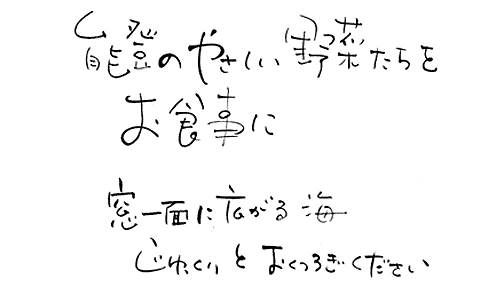 能登のやさしい野菜たちを
お食事に
窓一面に広がる海
じゅっくりとおくつろぎください